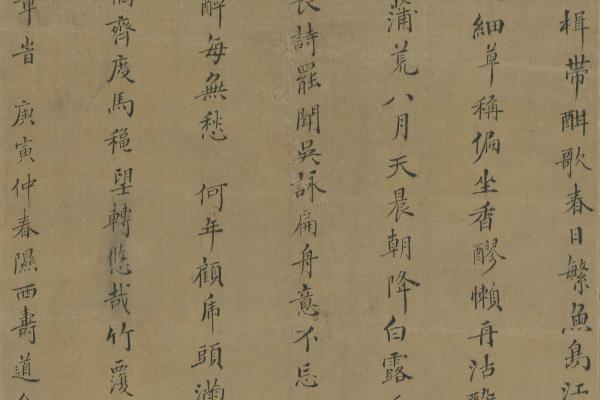 楫帶酣歌春日繁魚島江
細草稱偏坐香醪懶再沽醉
蒲荒八月天晨朝降白露
長詩罷聞吳詠扁舟意不忘
醉每無愁 何年顧虎頭滿
橋齊度馬穐望轉悠哉竹覆
庚寅仲春隰西壽道人